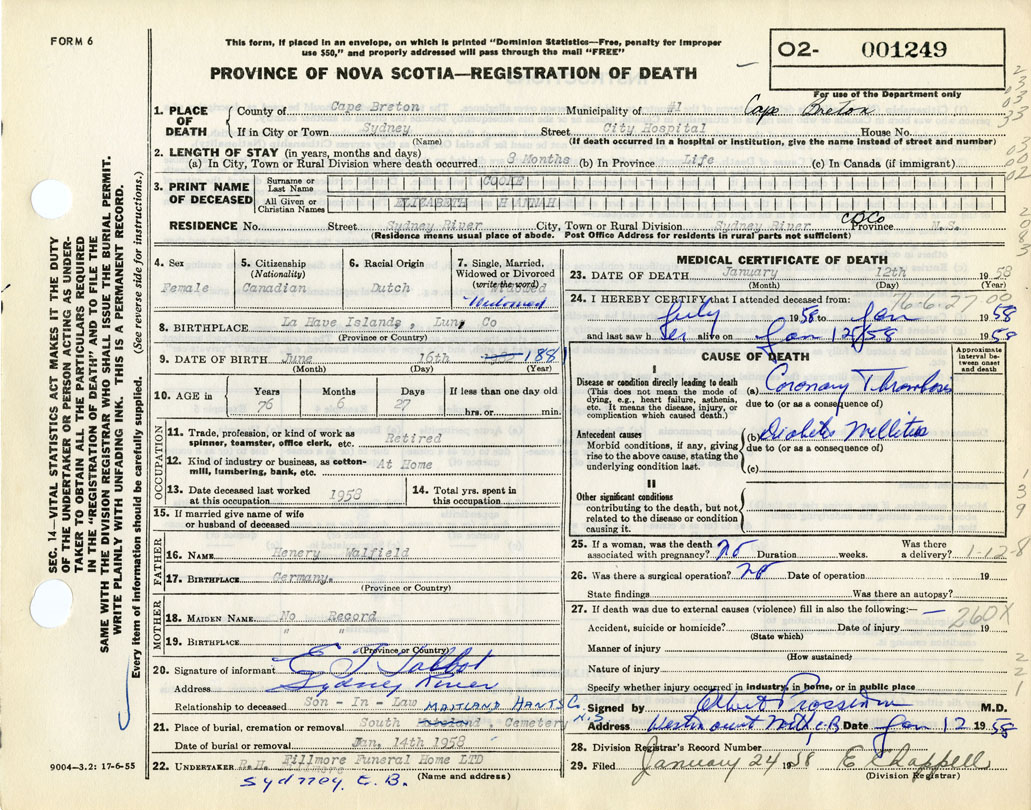 FORM 6
This form, if placed in an envelope, on which is printed "Dominion Statistics—Free, penalty for improper
use $50," and properly addressed will pass through the mail "FREE"
PROVINCE OF NOVA SCOTIA—REGISTRATION OF DEATH
02- 001249
For use of the Department only
1. PLACE OF DEATH
County of Cape Breton Municipality of #1 Cape Breton
If in City or Town Sydney Street City Hospital House No.
(Name) (If death occurred in a hospital or institution, give the name instead of street and number)
2. LENGTH OF STAY (in years, months and days)
(a) In City, Town or Rural Division where death occurred 3 Months (b) In Province Life (c) In Canada (if immigrant)
3. PRINT NAME OF DECEASED
Surname or Last Name COOKE
All Given or Christian Names ELIZABETH HANNAH
RESIDENCE No. Street Sydney River City, Town or Rural Division Sydney River CBCo Province N.S.
(Residence means usual place of abode. Post Office Address for residents in rural parts not sufficient)
4. Sex
Female
5. Citizenship
(Nationality)
Canadian
6. Racial Origin
Dutch
7. Single, Married,
Widowed or Divorced
(write the word)
Widowed
Widowed
8. BIRTHPLACE La Have Islands, Lun, Co
(Province or Country)
9. DATE OF BIRTH June 16th 1881
(Month) (Day) (Year)
10. AGE in
Years Months Days If less than one day old
76 6 27 hrs. or min.
OCCUPATION
11. Trade, profession, or kind of work as
spinner, teamster, office clerk, etc. Retired
12. Kind of industry or business, as cotton-
mill, lumbering, bank, etc. At Home
13. Date deceased last worked
at this occupation 1958
14. Total yrs. spent in
this occupation
15. If married give name of wife
or husband of deceased
FATHER
16. NAME Henery Walfield
17. BIRTHPLACE Germany.
(Province or Country)
MOTHER
18. MAIDEN NAME No Record
19. BIRTHPLACE " "
(Province or Country)
20. Signature of informant E J Talbot
Address Sydney River
Relationship to deceased Son - In - Law MAITLAND HANTS Co.
N.S
21. Place of burial, cremation or removal South Cemetery
Date of burial or removal Jan. 14th 1958
22. UNDERTAKER R.H. Fillmore Funeral Home LTD
(Name and address)
Sydney C.B.
9004—3.2: 17-6-55
SEC. 14—VITAL STATISTICS ACT MAKES IT THE DUTY
OF THE UNDERTAKER OR PERSON ACTING AS UNDER-
TAKER TO OBTAIN ALL THE PARTICULARS REQUIRED
IN THE "REGISTRATION OF DEATH" AND TO FILE THE
SAME WITH THE DIVISION REGISTRAR WHO SHALL ISSUE THE BURIAL PERMIT.
WRITE PLAINLY WITH UNFADING INK. THIS IS A PERMANENT RECORD.
Every item of information should be carefully supplied. (See reverse side for instructions.)
MEDICAL CERTIFICATE OF DEATH
23. DATE OF DEATH January 12th 1958
(Month) (Day) (Year)
76-6-27-00
24. I HEREBY CERTIFY that I attended deceased from:
July 1958 to Jan 1958
and last saw her alive on Jan 12 5/58 1958
CAUSE OF DEATH
Approximate
interval be-
tween onset
and death
I
Disease or condition directly leading to death
(This does not mean the mode of
dying, e.g., heart failure, asthenia,
etc. It means the disease, injury, or
complication which caused death.)
(a) Coronary Thrombosis
due to (or as a consequence of)
Antecedent causes
Morbid conditions, if any, giving
rise to the above cause, stating the
underlying condition last.
(b) Diabetes Mellitus
due to (or as a consequence of)
(c)
II
Other significant conditions
contributing to the death, but not
related to the disease or condition
causing it.
25. If a woman, was the death
associated with pregnancy? no Duration weeks. Was there
a delivery? 1-12-8
26. Was there a surgical operation? no Date of operation 19
State findings Was there an autopsy?
27. If death was due to external causes (violence) fill in also the following:—
260X
Accident, suicide or homicide? Date of injury 19
(State which)
Manner of injury
(How sustained)
Nature of injury
Specify whether injury occurred in industry, in home, or in public place
Signed by Albert M.D.
Address Date Jan 12 1958
28. Division Registrar's Record Number
29. Filed January 24 1958 E Chappell
(Division Registrar)